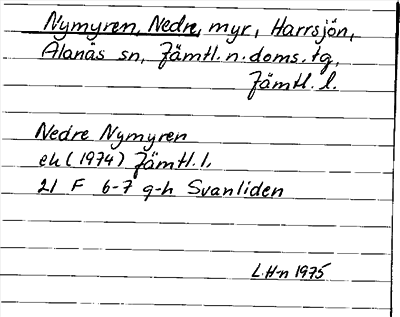 Nymyren, Nedre, myr, Harrsjön,
Alanäs sn, Jämtl. n. doms. tg,
Jämtl. l.
Nedre Nymyren
ek (1974) Jämtl. l.
21 F 6-7 g-h Svanliden
L.H-n 1975